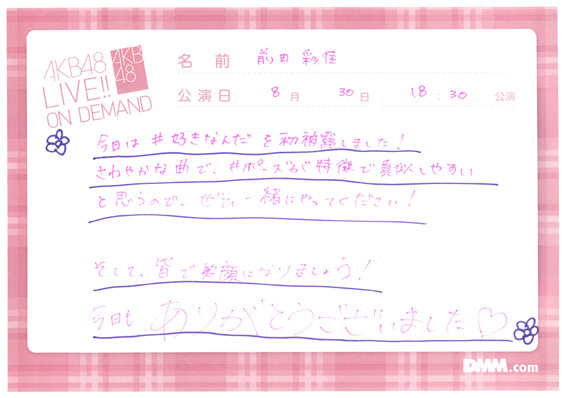 AKB48
LIVE!!
ON DEMAND
AKB
48
名 前 前田 彩佳
公演日 8 月 30 日 18 : 30 公演
今日は #好きなんだ を初披露しました!
さわやかな曲で、#ポーズが特徴で真似しやすい
と思うので、ぜひ一緒にやってください!
そして、皆で笑顔になりましょう!
今日も ありがとうございました♡
DMM.com